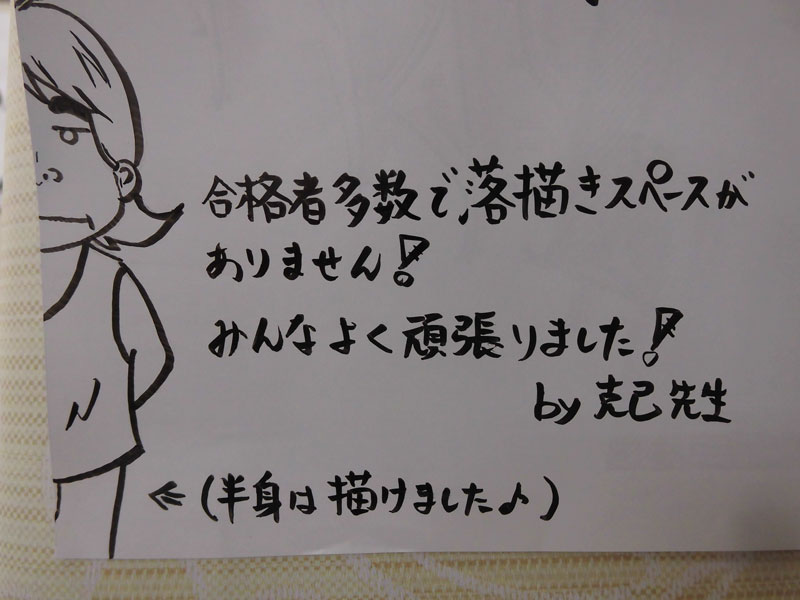 合格者多数で、落描きスペースが
ありません!
みんなよく頑張りました!
by 克己先生
←(半身は描けました♪)